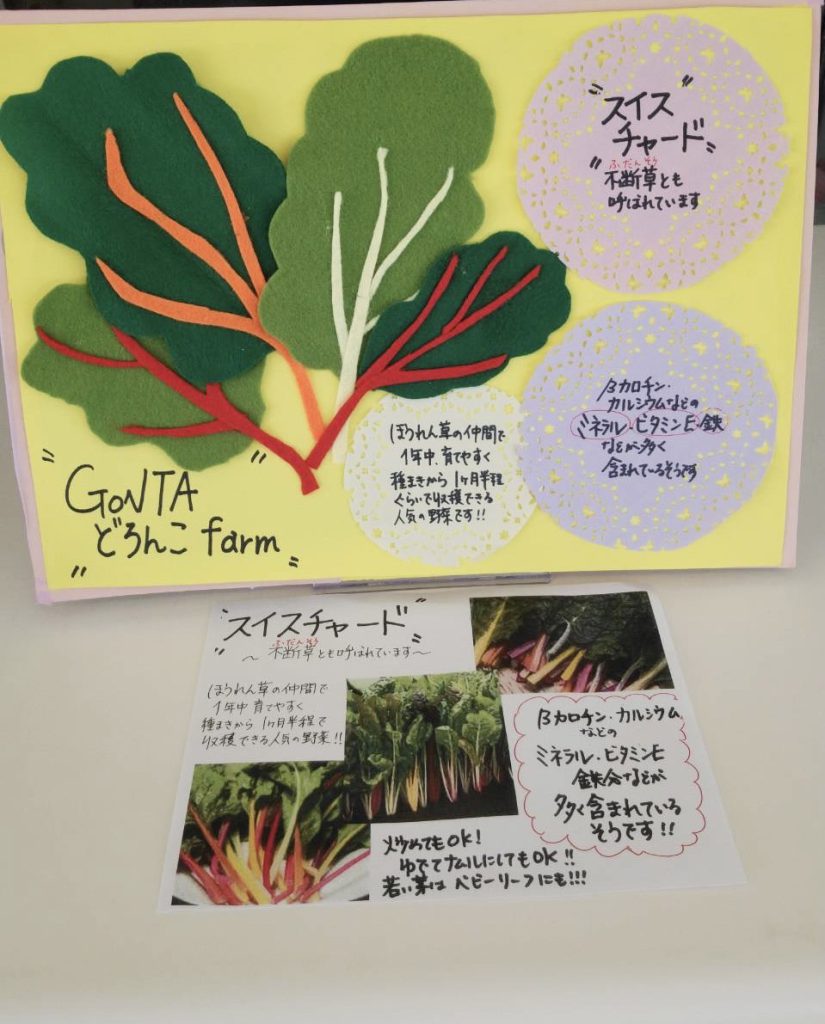 "スイス"
チャード"
ふだんそう
"不断草とも
呼ばれています
βカロチン・
カルシウムなどの
ミネラル・ビタミンE・鉄
などが多く
含まれているそうです
ほうれん草の仲間で
1年中、育てやすく
種まきから1ヶ月半程
ぐらいで収穫できる
人気の野菜です!!
"GoNTA
どろんこ farm"
"スイスチャード"
ふだんそう
〜不断草とも呼ばれています〜
ほうれん草の仲間で
1年中育てやすく
種まきから1ヶ月半程で
収穫できる人気の野菜!!
βカロチン・カルシウム
などの
ミネラル・ビタミンE
鉄分などが
多く含まれている
そうです!!
炒めてもOK!
ゆでてナムルにしてもOK!!
若い芽は ベビーリーフにも!!!